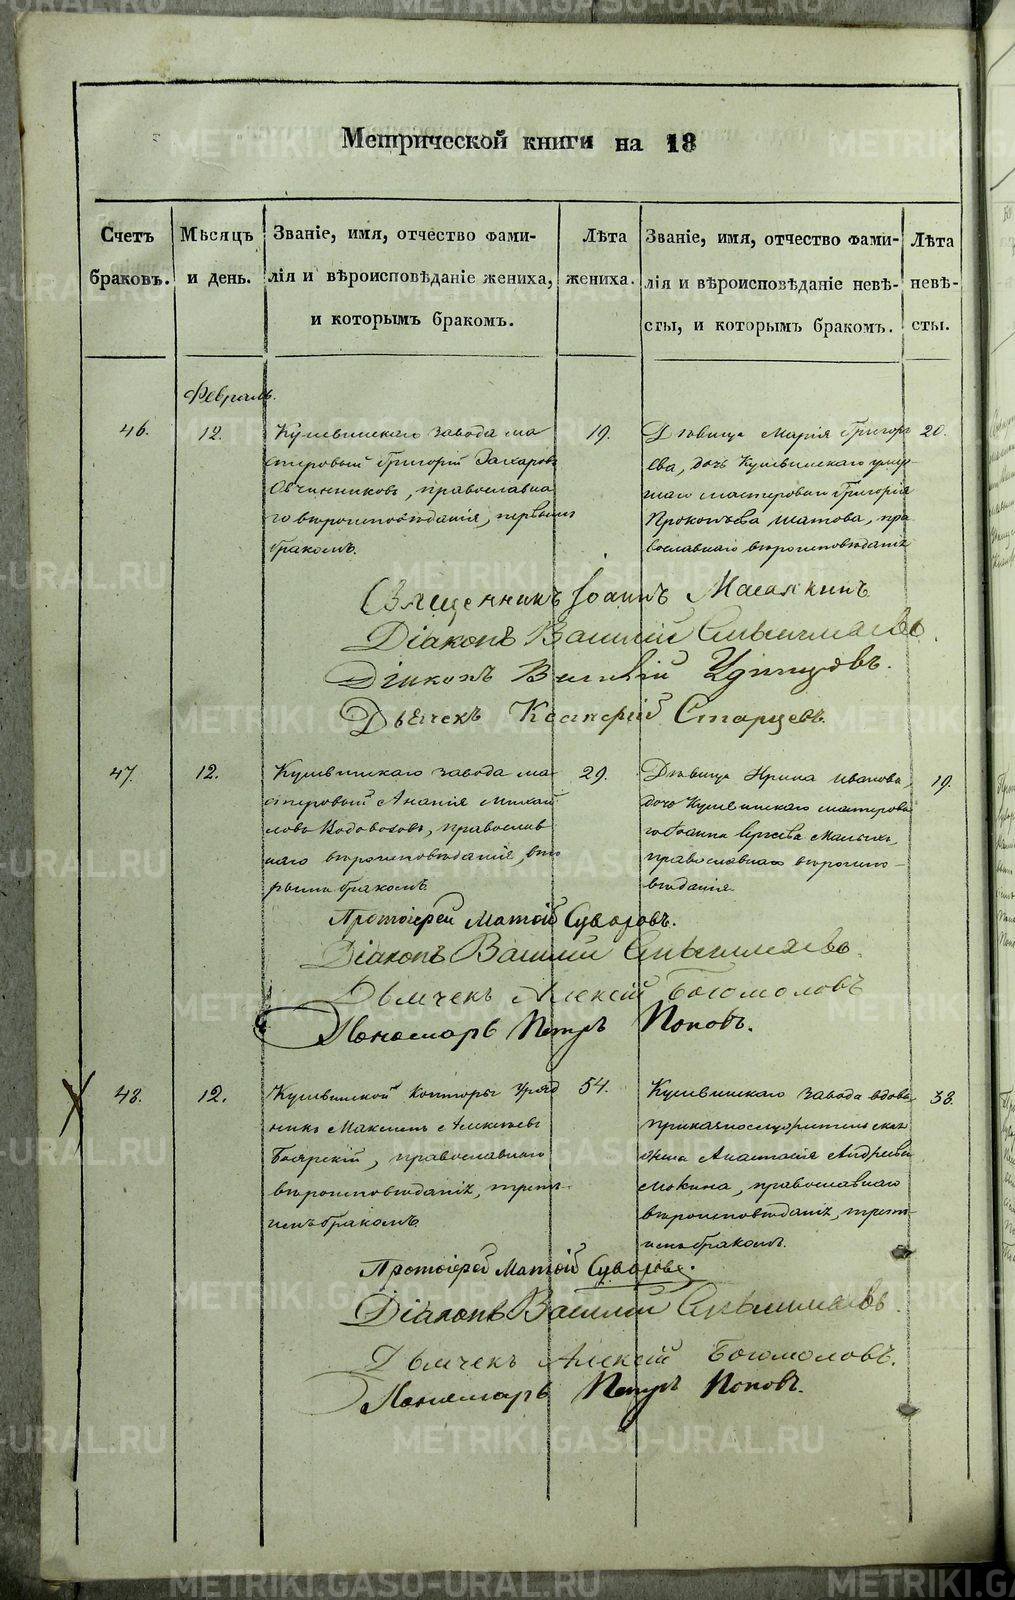 Метрической книги на 18
Счетъ браковъ.
Мѣсяцъ и день.
Званіе, имя, отчество фами-
лія и вѣроисповѣданіе жениха,
и которымъ бракомъ.
Лѣта жениха.
Званіе, имя, отчество фами-
лія и вѣроисповѣданіе невѣ-
сты, и которымъ бракомъ.
Лѣта невѣ-
сты.
Февраль.
46.
12.
Кушвинскаго завода ма
стеровый Григорій Захаровъ
Овчинниковъ, православна
го вѣроисповѣданія, первымъ
бракомъ.
19.
Дѣвица Марія Григорь
ева, дочь Кушвинскаго умер-
шаго мастероваго Григорія
Прокопьева Шатова, пра
вославнаго вѣроисповѣданія
20.
Священникъ Іоаннъ
Діаконъ Василій
Діаконъ Василій Удинцовъ.
Дьячекъ Касторій Старцевъ.
47.
12.
Кушвинскаго завода ма
стеровый Ананія Михай
ловъ Водовозовъ, православ
наго вѣроисповѣданія, вто
рымъ бракомъ
29.
Дѣвица Ирина Иванова,
дочь Кушвинскаго мастерова
го Іоанна Малыхъ,
православнаго вѣроиспо-
вѣданія
19.
Протоіерей Матѳій Суворовъ.
Діаконъ Василій
Дьячекъ Алексій Богомоловъ
Пономарь Петръ Поповъ.
48.
12.
Кушвинской Конторы Уряд
никъ Максимъ Алексѣевъ
Боярскій, православнаго
вѣроисповѣданія, треть-
имъ бракомъ
54.
Кушвинскаго завода вдова
приказнослужительская
жена Анастасія Андреева
Мокина, православнаго
вѣроисповѣданія, треть-
имъ бракомъ.
38.
Протоіерей Матѳій Суворовъ.
Діаконъ Василій
Дьячекъ Алексій Богомоловъ.
Пономарь Петръ Поповъ.
METRIKI.GASO-URAL.RU